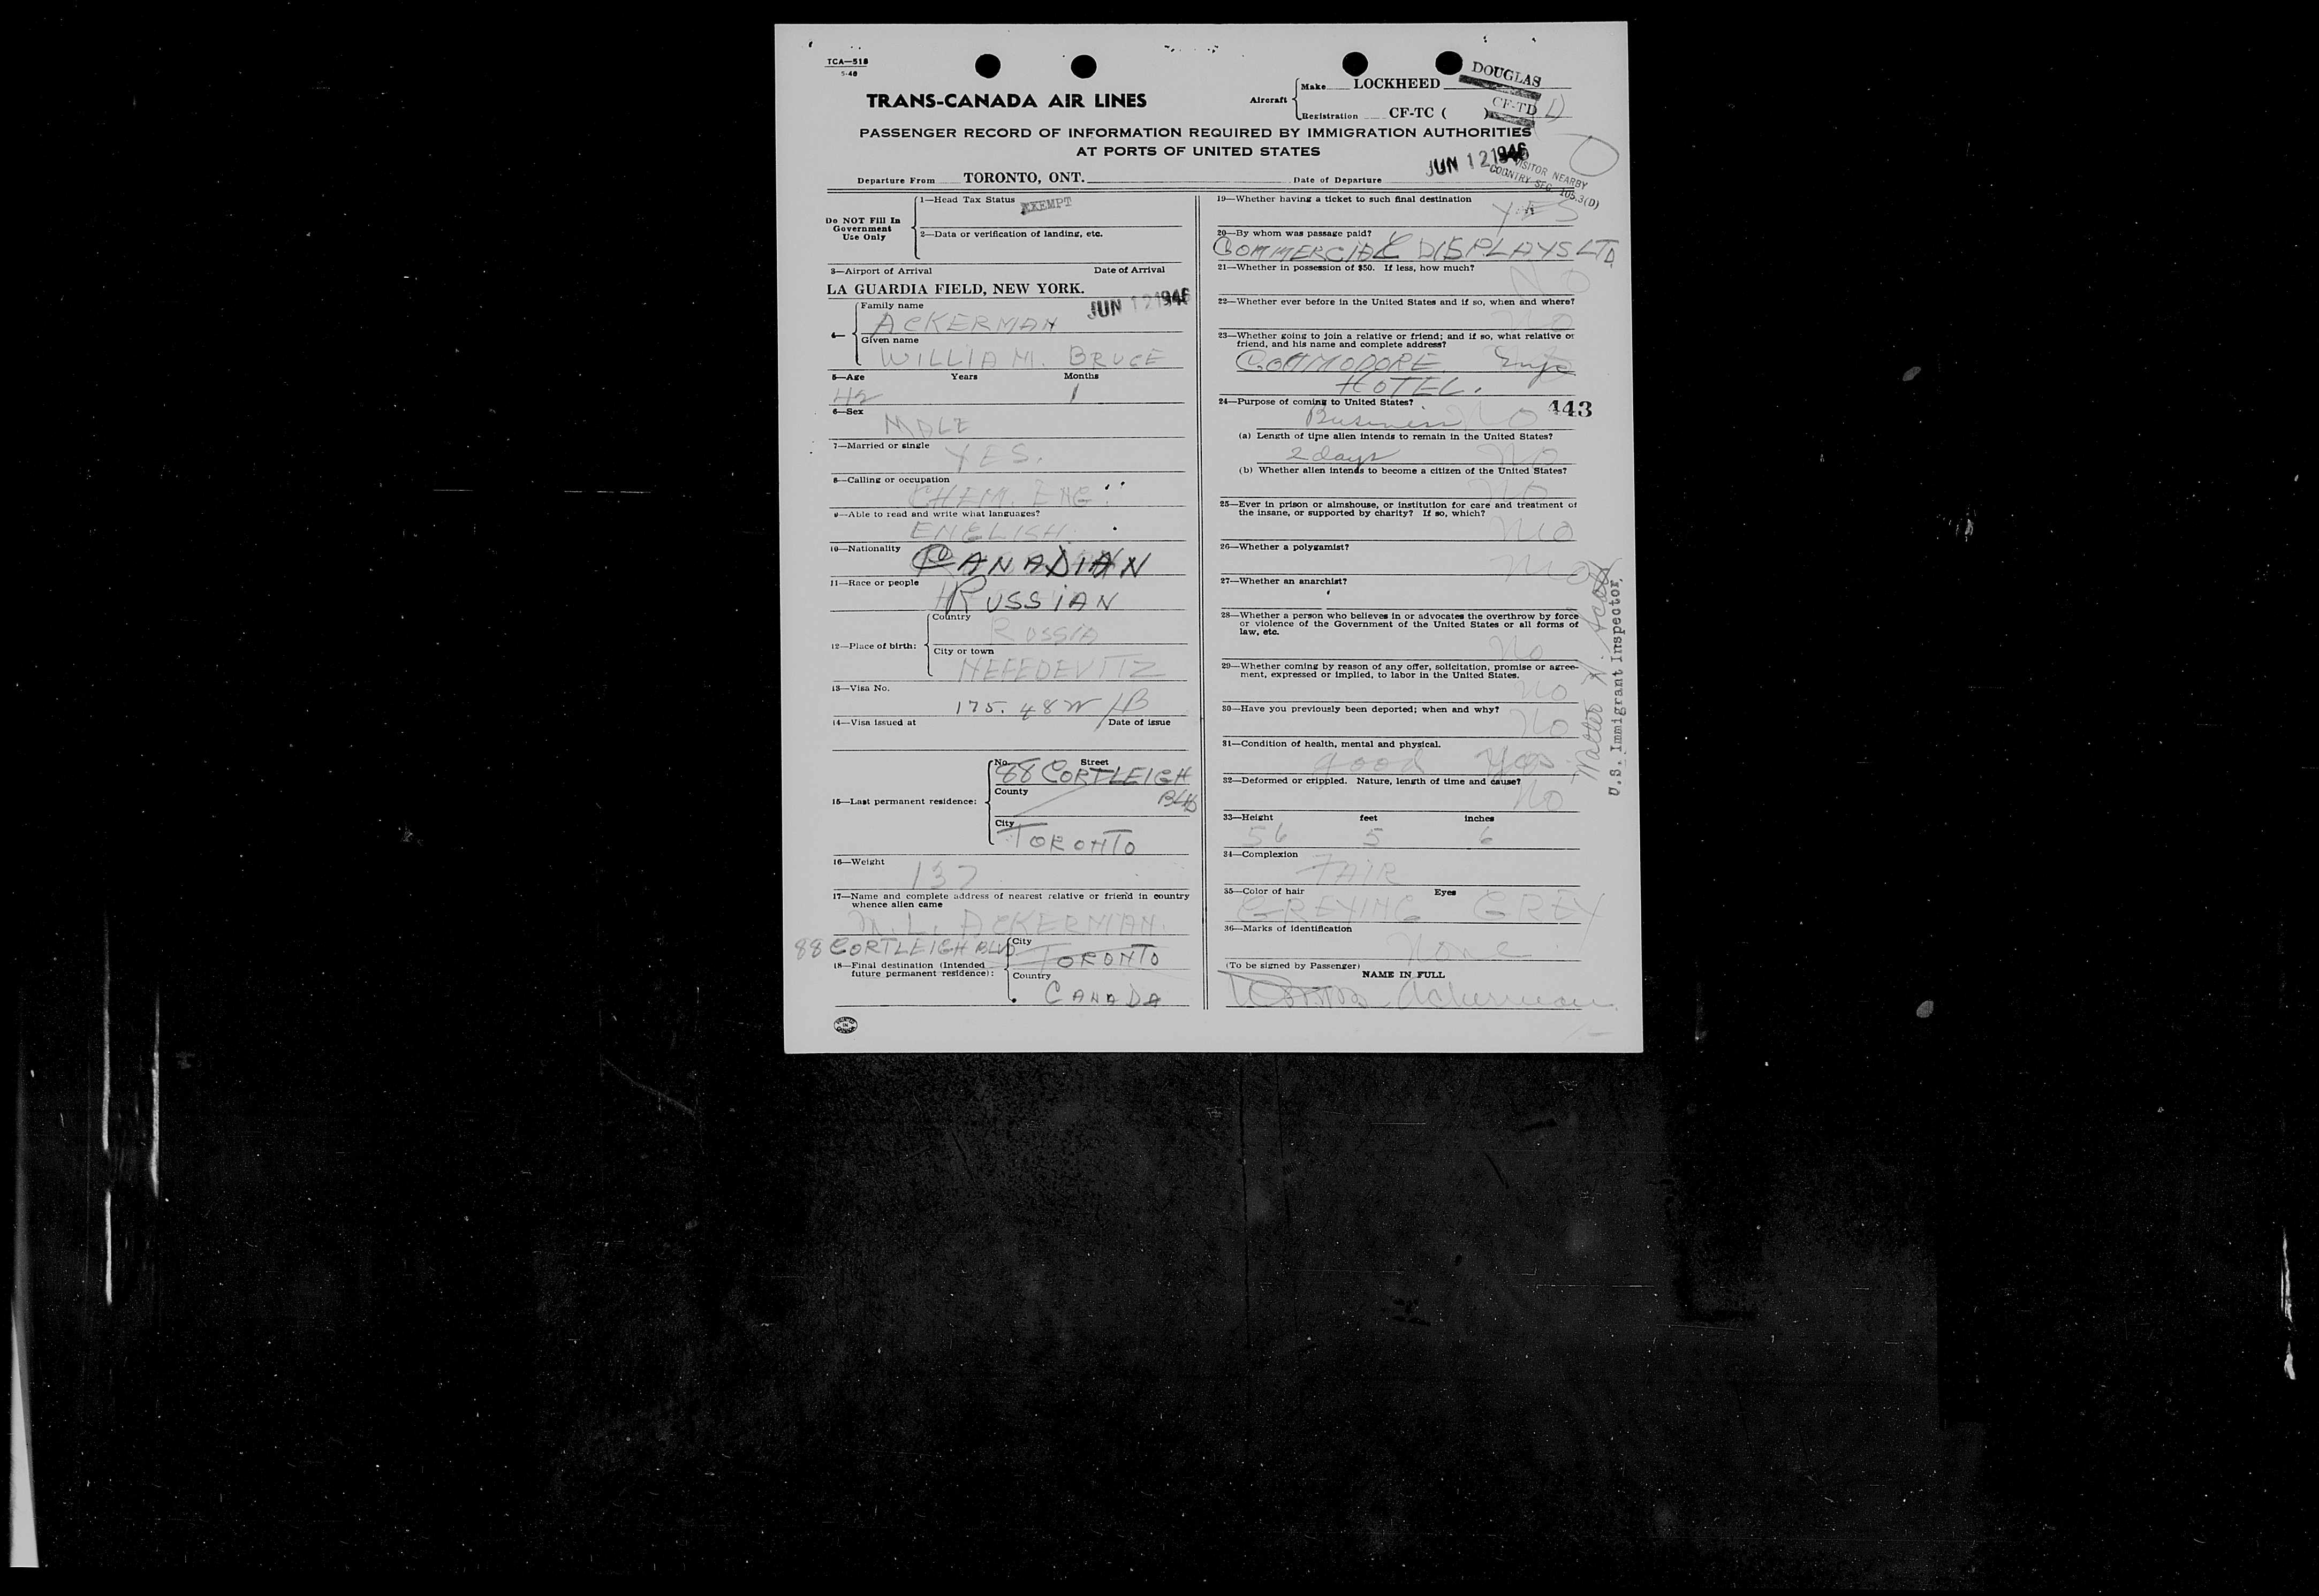 TCA—518
5-46
TRANS-CANADA AIR LINES
Aircraft
Make LOCKHEED DOUGLAS
Registration CF-TC ( ) CF-TD D
PASSENGER RECORD OF INFORMATION REQUIRED BY IMMIGRATION AUTHORITIES
AT PORTS OF UNITED STATES
Departure From TORONTO, ONT. Date of Departure JUN 12 1946
VISITOR NEARBY
COUNTRY SEC. 105.3(D)
Do NOT Fill In
Government
Use Only
1—Head Tax Status EXEMPT
2—Data or verification of landing, etc.
3—Airport of Arrival Date of Arrival
LA GUARDIA FIELD, NEW YORK. JUN 12 1946
4— Family name
ACKERMAN
Given name
WILLIAM. BRUCE
5—Age Years Months
42 1
6—Sex
MALE
7—Married or single
YES.
8—Calling or occupation
CHEM. ENG.
9—Able to read and write what languages?
ENGLISH.
10—Nationality
CANADIAN
11—Race or people
RUSSIAN
12—Place of birth:
Country
RUSSIA
City or town
NEFEDEVITZ
13—Visa No.
175.48
14—Visa issued at Date of issue
15—Last permanent residence:
No. Street
88 CORTLEIGH
BLVD
County
City
TORONTO
16—Weight
137
17—Name and complete address of nearest relative or friend in country
whence alien came
M. L. ACKERMAN.
88 CORTLEIGH BLVD
18—Final destination (Intended
future permanent residence):
City
TORONTO
Country
CANADA
PRINTED IN CANADA
19—Whether having a ticket to such final destination
YES
20—By whom was passage paid?
COMMERCIAL DISPLAYS LTD
21—Whether in possession of $50. If less, how much?
NO
22—Whether ever before in the United States and if so, when and where?
No
23—Whether going to join a relative or friend; and if so, what relative or
friend, and his name and complete address?
COMMODORE
HOTEL.
24—Purpose of coming to United States? 443
Business No
(a) Length of time alien intends to remain in the United States?
2 days No
(b) Whether alien intends to become a citizen of the United States?
No
25—Ever in prison or almshouse, or institution for care and treatment of
the insane, or supported by charity? If so, which?
No
26—Whether a polygamist?
No
27—Whether an anarchist?
28—Whether a person who believes in or advocates the overthrow by force
or violence of the Government of the United States or all forms of
law, etc.
No
29—Whether coming by reason of any offer, solicitation, promise or agree-
ment, expressed or implied, to labor in the United States.
No
30—Have you previously been deported; when and why?
No
31—Condition of health, mental and physical.
good Yes
32—Deformed or crippled. Nature, length of time and cause?
No
33—Height feet inches
56 5 6
34—Complexion
FAIR
35—Color of hair Eyes
GREYING GREY
36—Marks of identification
None
(To be signed by Passenger)
NAME IN FULL
Ackerman
Walter N.
U.S. Immigrant Inspector